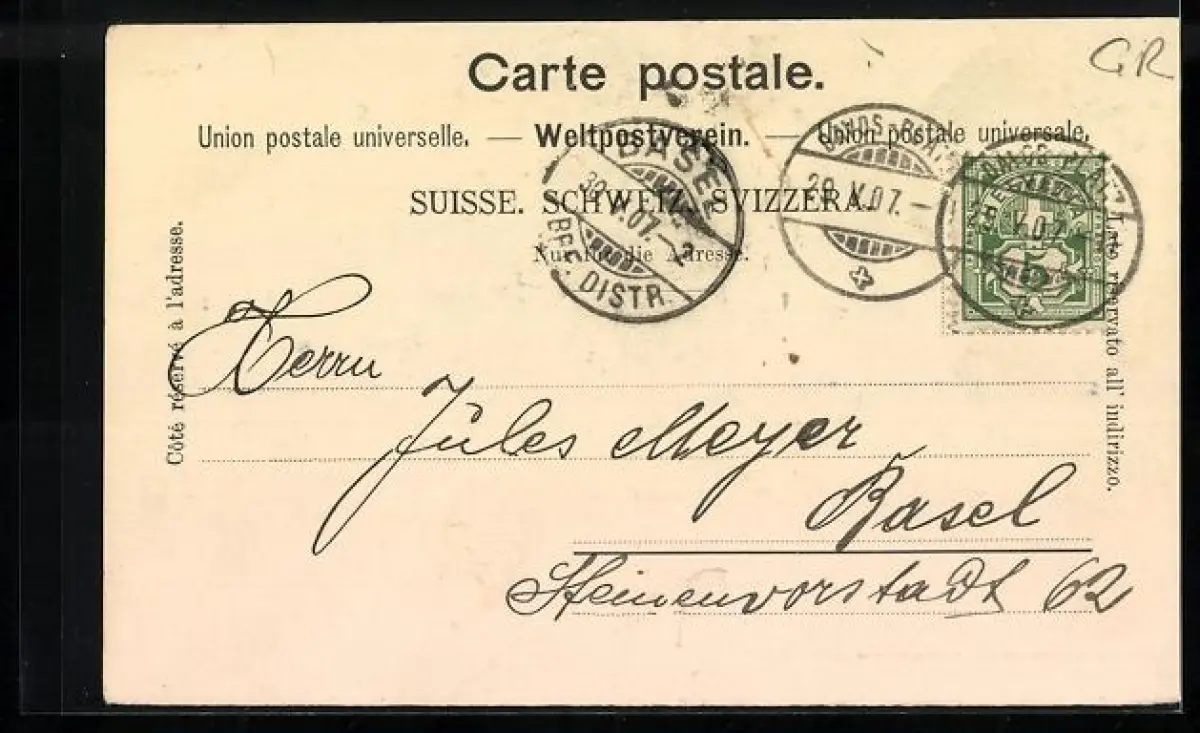 GR
Carte postale.
Union postale universelle. — Weltpostverein. — Union postale universale.
SUISSE. SCHWEIZ. SVIZZERA.
Nur für die Adresse.
BASEL
V.07.–2
BRF. DISTR.
DAVOS-PLATZ
29.V.07.–
DAVOS-PLATZ
29.V.07.
HELVETIA
5
Côté réservé à l'adresse.
Lato riservato all' indirizzo.
Herrn
Jules Meyer
Basel
Steinenvorstadt 62